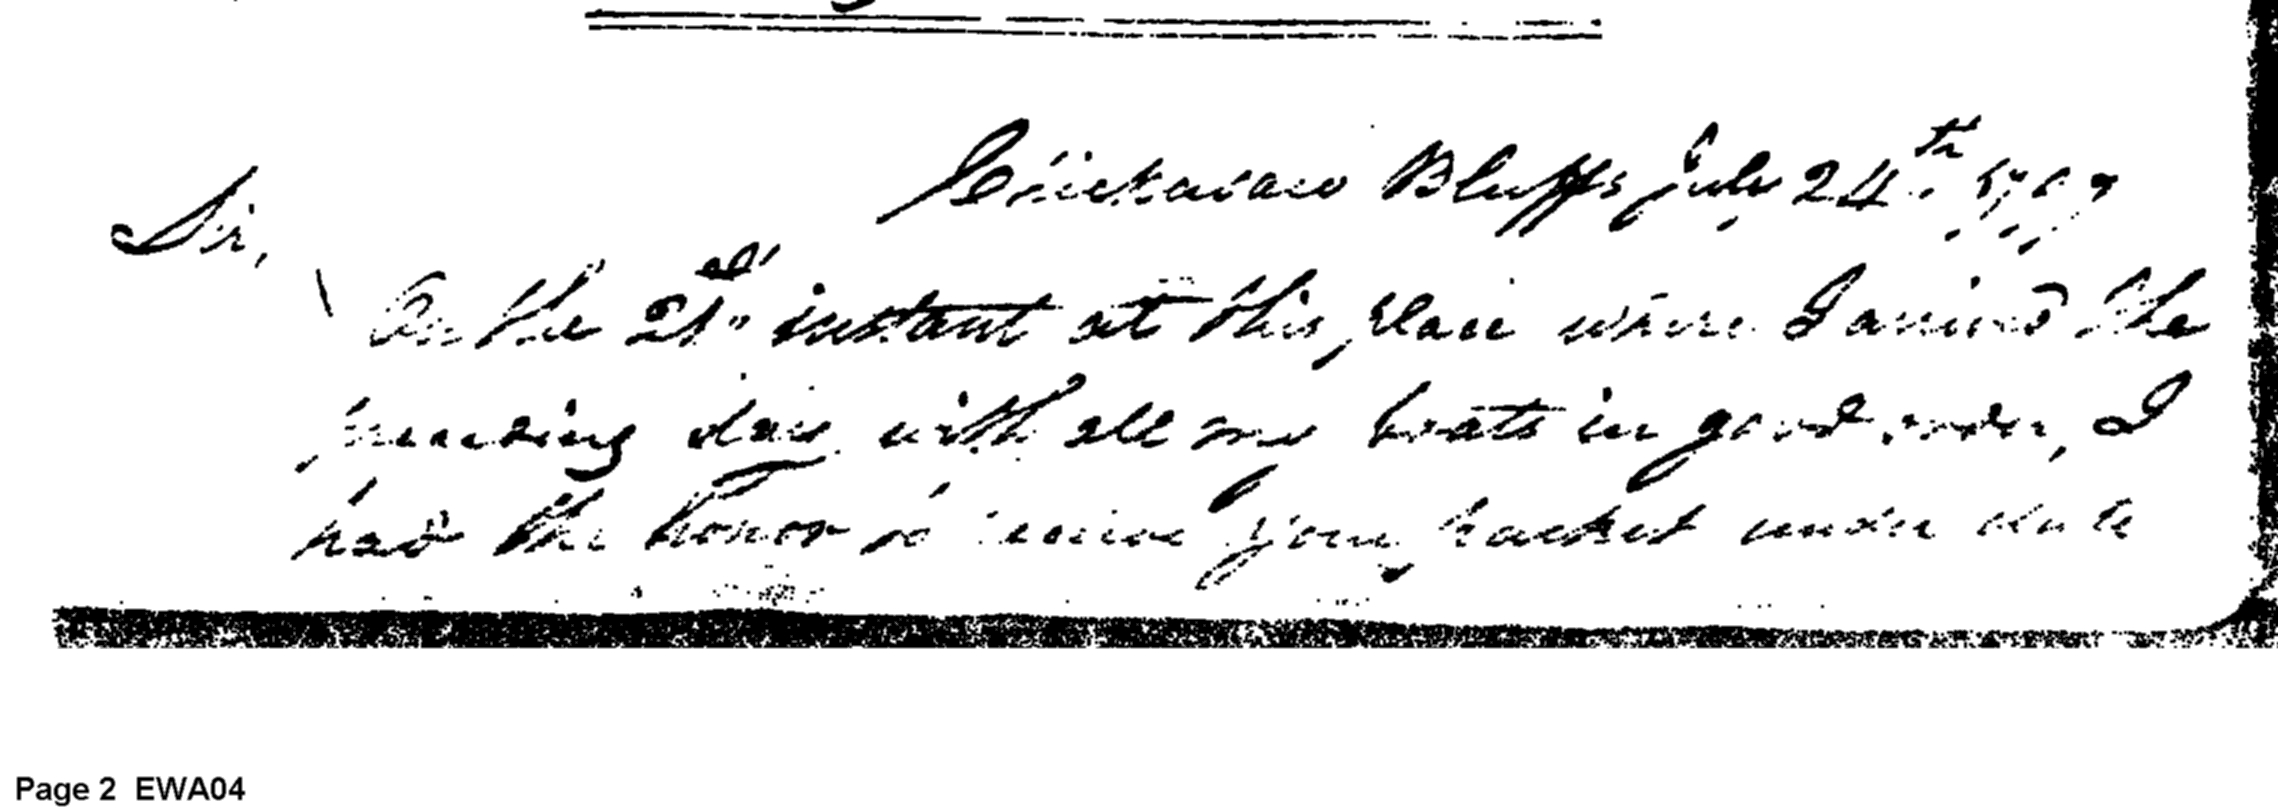 Chickasaw Bluffs July 24th. 1797
Sir,
On the 21st. instant at this place where I arrived the
preceding day with all my boats in good order, I
had the honor to receive your packet under date
Page 2 EWA04